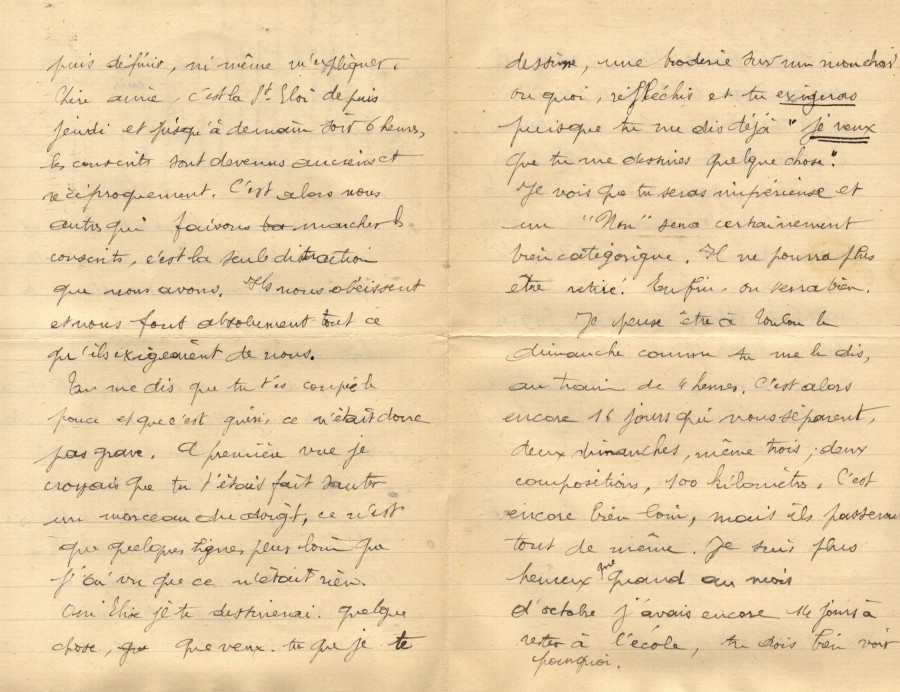 puis définir, ni même m'expliquer.
amie, c'est la St. Eloi depuis
jeudi et jusqu'à demain soir 6 heures,
les conscrits sont devenus anciens et
réciproquement. C'est alors nous
autres qui faisons marcher les
conscrits, c'est la seule distraction
que nous avons. Ils nous obéissent
et nous font absolument tout ce
qu'ils exigeaient de nous.
Tu me dis que tu t'es coupé le
pouce et que c'est guéri, ce n'était donc
pas grave. A première vue je
croyais que tu t'étais fait sauter
un morceau du doigt, ce n'est
que quelques lignes plus loin que
j'ai vu que ce n'était rien.
Oui Elise je te dessinerai quelque
chose, que veux-tu que je te
dessine, une broderie sur un mouchoir
ou quoi, réfléchis et tu exigeras
puisque tu me dis déjà "je veux
que tu me destines quelque chose".
Je vois que tu seras impérieuse et
un "Non" sera certainement
bien catégorique. Il ne pourra plus
être retiré. Enfin on verra bien.
Je pense être à Toulon le
dimanche comme tu me le dis,
au train de 4 heures. C'est alors
encore 16 jours qui nous séparent,
deux dimanches, même trois, deux
compositions, 100 kilomètres. C'est
encore bien loin, mais ils passeront
tout de même. Je suis plus
heureux que quand au mois
d'octobre j'avais encore 14 jours à
rester à l'école, tu dois bien voir
pourquoi.